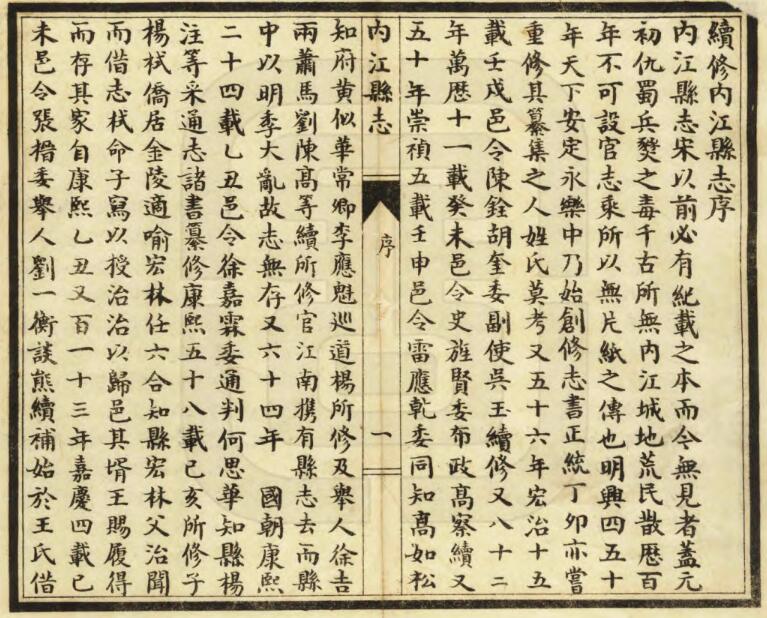 續修内江縣志序
内江縣志宋以前必有紀載之本而今無見者蓋元
初仇蜀兵燹之毒千古所無内江城地荒民散歷百
年不可設官志乘所以無片紙之傳也明興四五十
年天下安定永樂中乃始創修志書正統丁卯亦嘗
重修其纂集之人姓氏莫考又五十六年宏治十五
載壬戌邑令陳銓胡奎委副使吳玉續修又八十二
年萬歷十一載癸未邑令史旌賢委布政高察續又
五十年崇禎五載壬申邑令雷應乾委同知高如松
内江縣志
序
一
知府黄似華常卿李應魁巡道楊所修及舉人徐吉
兩蕭馬劉陳高等續所修官江南攜有縣志去而縣
中以明季大亂故志無存又六十四年 國朝康熙
二十四載乙丑邑令徐嘉霖委通判何思華知縣楊
注等采通志諸書纂修康熙五十八載已亥所修子
楊栻僑居金陵適喻宏林任六合知縣宏林父治聞
而借志栻命子寫以授治治以歸邑其壻王賜履得
而存其家自康熙乙丑又百一十三年嘉慶四載已
未邑令張搢委舉人劉一衡談熊續補始於王氏借